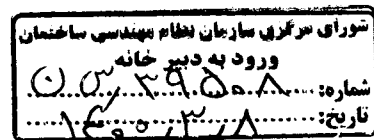 شورای مرکزی سازمان نظام مهندسی ساختمان
ورود به دبیر خانه
شماره: ۳۹۵۰۸
تاریخ: ۱۴۰۰,۳,۸